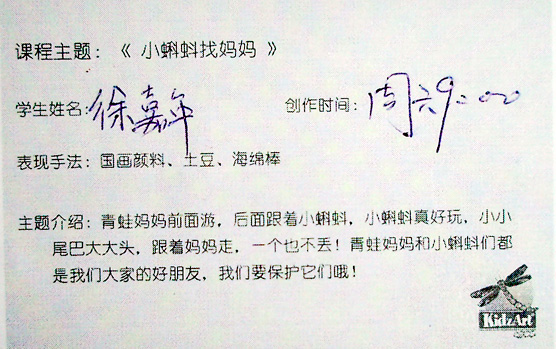 课程主题：《 小蝌蚪找妈妈 》
学生姓名：徐嘉年 创作时间：周六9:00
表现手法：国画颜料、土豆、海绵棒
主题介绍：青蛙妈妈前面游，后面跟着小蝌蚪，小蝌蚪真好玩，小小
尾巴大大头，跟着妈妈走，一个也不丢！青蛙妈妈和小蝌蚪们都
是我们大家的好朋友，我们要保护它们哦！
KidzArt